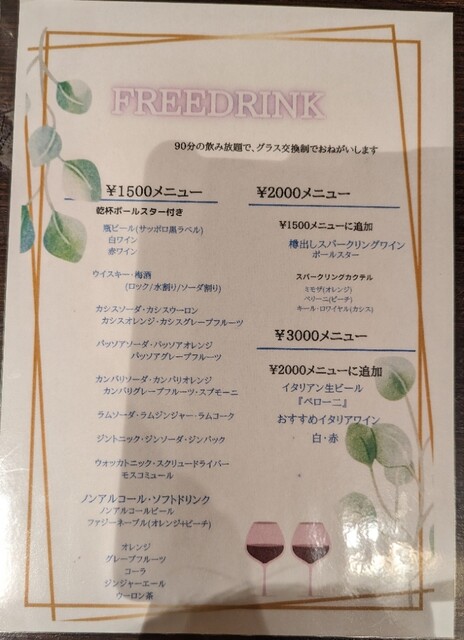 FREEDRINK
90分の飲み放題で、グラス交換制でおねがいします
¥1500メニュー
乾杯ポールスター付き
瓶ビール(サッポロ黒ラベル)
白ワイン
赤ワイン
ウイスキー・梅酒
(ロック/水割り/ソーダ割り)
カシスソーダ・カシスウーロン
カシスオレンジ・カシスグレープフルーツ
パッソアソーダ・パッソアオレンジ
パッソアグレープフルーツ
カンパリソーダ・カンパリオレンジ
カンパリグレープフルーツ・スプモーニ
ラムソーダ・ラムジンジャー・ラムコーク
ジントニック・ジンソーダ・ジンバック
ウォッカトニック・スクリュードライバー
モスコミュール
ノンアルコール・ソフトドリンク
ノンアルコールビール
ファジーネーブル(オレンジ+ピーチ)
オレンジ
グレープフルーツ
コーラ
ジンジャーエール
ウーロン茶
¥2000メニュー
¥1500メニューに追加
樽出しスパークリングワイン
ポールスター
スパークリングカクテル
ミモザ(オレンジ)
ベリーニ(ピーチ)
キール・ロワイヤル(カシス)
¥3000メニュー
¥2000メニューに追加
イタリアン生ビール
『ペローニ』
おすすめイタリアワイン
白・赤